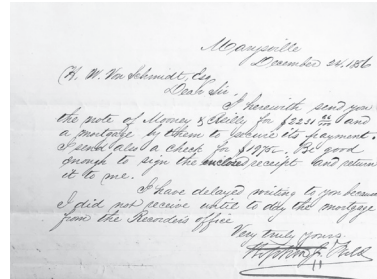 Marysville
December 24. 1856
A. W. Von Schmidt, Esq
Dear Sir.
I herewith send you
the note of Money & Reilly for $2231 and
a mortgage by them to secure its payment.
I send also a check for $1975-. Be good
enough to sign the enclosed receipt and return
it to me.
I have delayed writing to you because
I did not receive until to day the mortgage
from the Recorder's office
Very truly yours.
Field